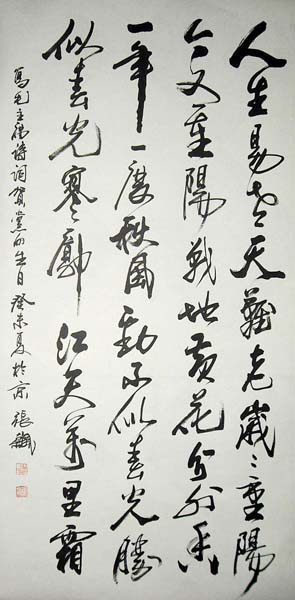 人生易老天難老歲〻重陽
今又重陽戰地黃花分外香
一年一度秋風勁不似春光勝
似春光寥廓江天萬里霜
寫毛主席詩詞賀黨的生日癸未夏於京張